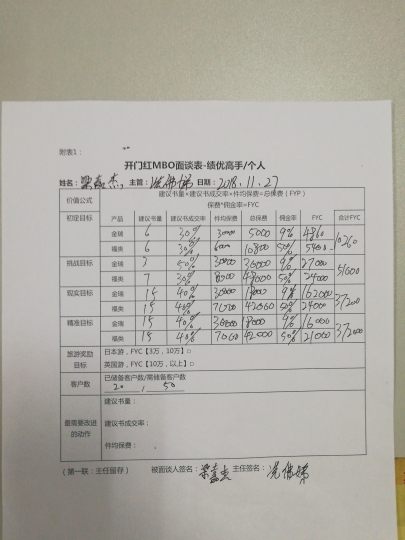 附表1：
开门红MBO面谈表-绩优高手/个人
姓名： 主管： 日期：2018.11.27
价值公式 建议书量×建议书成交率×件均保费=总保费（FYP）
保费*佣金率=FYC
初定目标 产品 建议书量 建议书成交率 件均保费 总保费 佣金率 FYC 合计FYC
金瑞 6 30% 3000 5000 9% 4860 10260
福类 6 30% 6000 10800 50% 5400
挑战目标 金瑞 3 50% 30000 9% 27000 51000
福类 7 30% 8000 48000 50% 24000
现实目标 金瑞 15 40% 9% 162000 37200
福类 15 40% 7000 42000 50%
精准目标 金瑞 15 40% 30000 9% 16000 372000
福类 15 40% 7000 42000 50% 21000
旅游奖励目标 日本游，FYC【3万，10万】□
英国游，FYC【10万，以上】□
客户数 已储备客户数/需储备客户数
20 / 50
最需要改进的动作 建议书量：
建议书成交率：
件均保费：
（第一联：主任留存） 被面谈人签名： 主任签名：